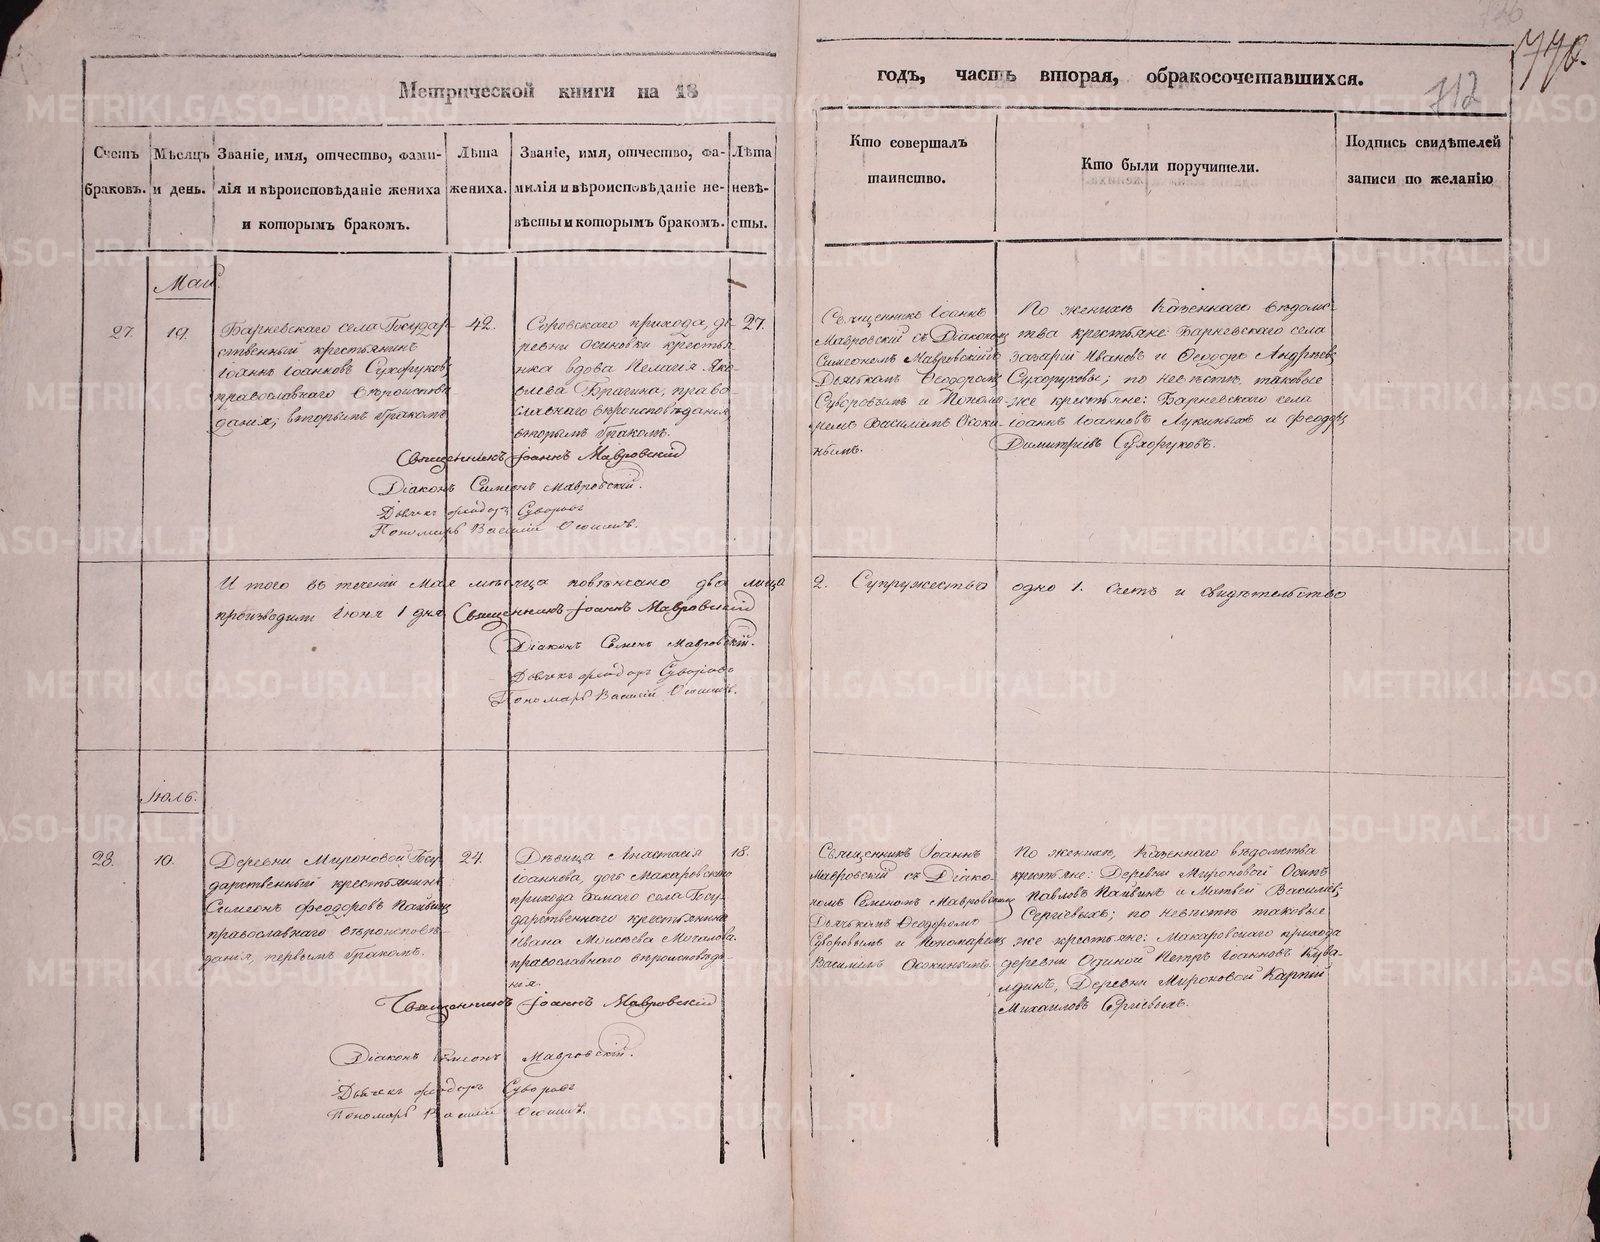 Метрической книги на 18
годъ, часть вторая, обракосочетавшихся.
712
770.
Счетъ браковъ.
Мѣсяцъ и день.
Званіе, имя, отчество, фами-
лія и вѣроисповѣданіе жениха
и которымъ бракомъ.
Лѣта
жениха.
Званіе, имя, отчество, фа-
милія и вѣроисповѣданіе не-
вѣсты и которымъ бракомъ.
Лѣта
невѣ-
сты.
Кто совершалъ
таинство.
Кто были поручители.
Подпись свидѣтелей
записи по желанію
Май.
27.
19.
Барневскаго села Государ-
ственный крестьянинъ
Іоаннъ Іоанновъ Сухоруковъ
православнаго вѣроисповѣ-
данія, вторымъ бракомъ
42.
прихода, де-
ревни Осиновки крестья
нка вдова Пелагія Яко
влева Брагина, право-
славнаго вѣроисповѣданія,
вторымъ бракомъ.
27.
Священникъ Іоаннъ
Мавровскій съ Діакономъ
Симеономъ Мавровскимъ
Дьячкомъ Ѳеодоромъ
Суворовымъ и Понома
ремъ Василіемъ Осоки-
нымъ.
По женихѣ Казеннаго вѣдомс-
тва крестьяне: Барневскаго села
Захарій Ивановъ и Ѳеодоръ Андреевъ
Сухоруковы; по невѣстѣ таковые
же крестьяне: Барневскаго села
Іоаннъ Іоанновъ Лукиныхъ и Феодоръ
Димитріевъ Сухоруковъ.
Священникъ Іоаннъ Мавровскій
Діаконъ Симеонъ Мавровскій.
Дьячекъ Феодоръ Суворовъ
Пономарь Василій Осокинъ.
И того въ теченіи Мая мѣсяца повѣнчано два лица 2. Супружества одно 1. счетъ и свидѣтельство
производили Іюня 1 дня Священникъ Іоаннъ Мавровскій
Діаконъ Семенъ Мавровскій.
Дьячекъ Феодоръ Суворовъ
Пономарь Василій Осокинъ.
Іюль.
28.
10.
Деревни Мироновой Госу
дарственный крестьянинъ
Симеонъ Феодоровъ Пайвинъ
православнаго вѣроисповѣ-
данія, первымъ бракомъ.
24.
Дѣвица Анастасія
Іоаннова, дочь Макаровскаго
прихода самаго села Госу-
дарственнаго крестьянина
Ивана Моисеева Мочалова.
православнаго вѣроисповѣда-
нія.
18.
Священникъ Іоаннъ
Мавровскій съ Діако-
номъ Семеномъ Мавровскимъ
Дьячкомъ Ѳеодоромъ
Суворовымъ и Пономаремъ
Василіемъ Осокинымъ.
По женихѣ, Казеннаго вѣдомства
крестьяне: Деревни Мироновой Осипъ
Павловъ Пайвинъ и Матвей Василіевъ
Сергіевыхъ; по невѣстѣ таковые
же крестьяне: Макаровскаго прихода
деревни Одиной Петръ Іоанновъ Кува
лдинъ, Деревни Мироновой Карпій
Михаиловъ Сергіевыхъ.
Священникъ Іоаннъ Мавровскій
Діаконъ Симеонъ Мавровскій.
Дьячекъ Феодоръ Суворовъ
Пономарь Василій Осокинъ.
METRIKI.GASO-URAL.RU